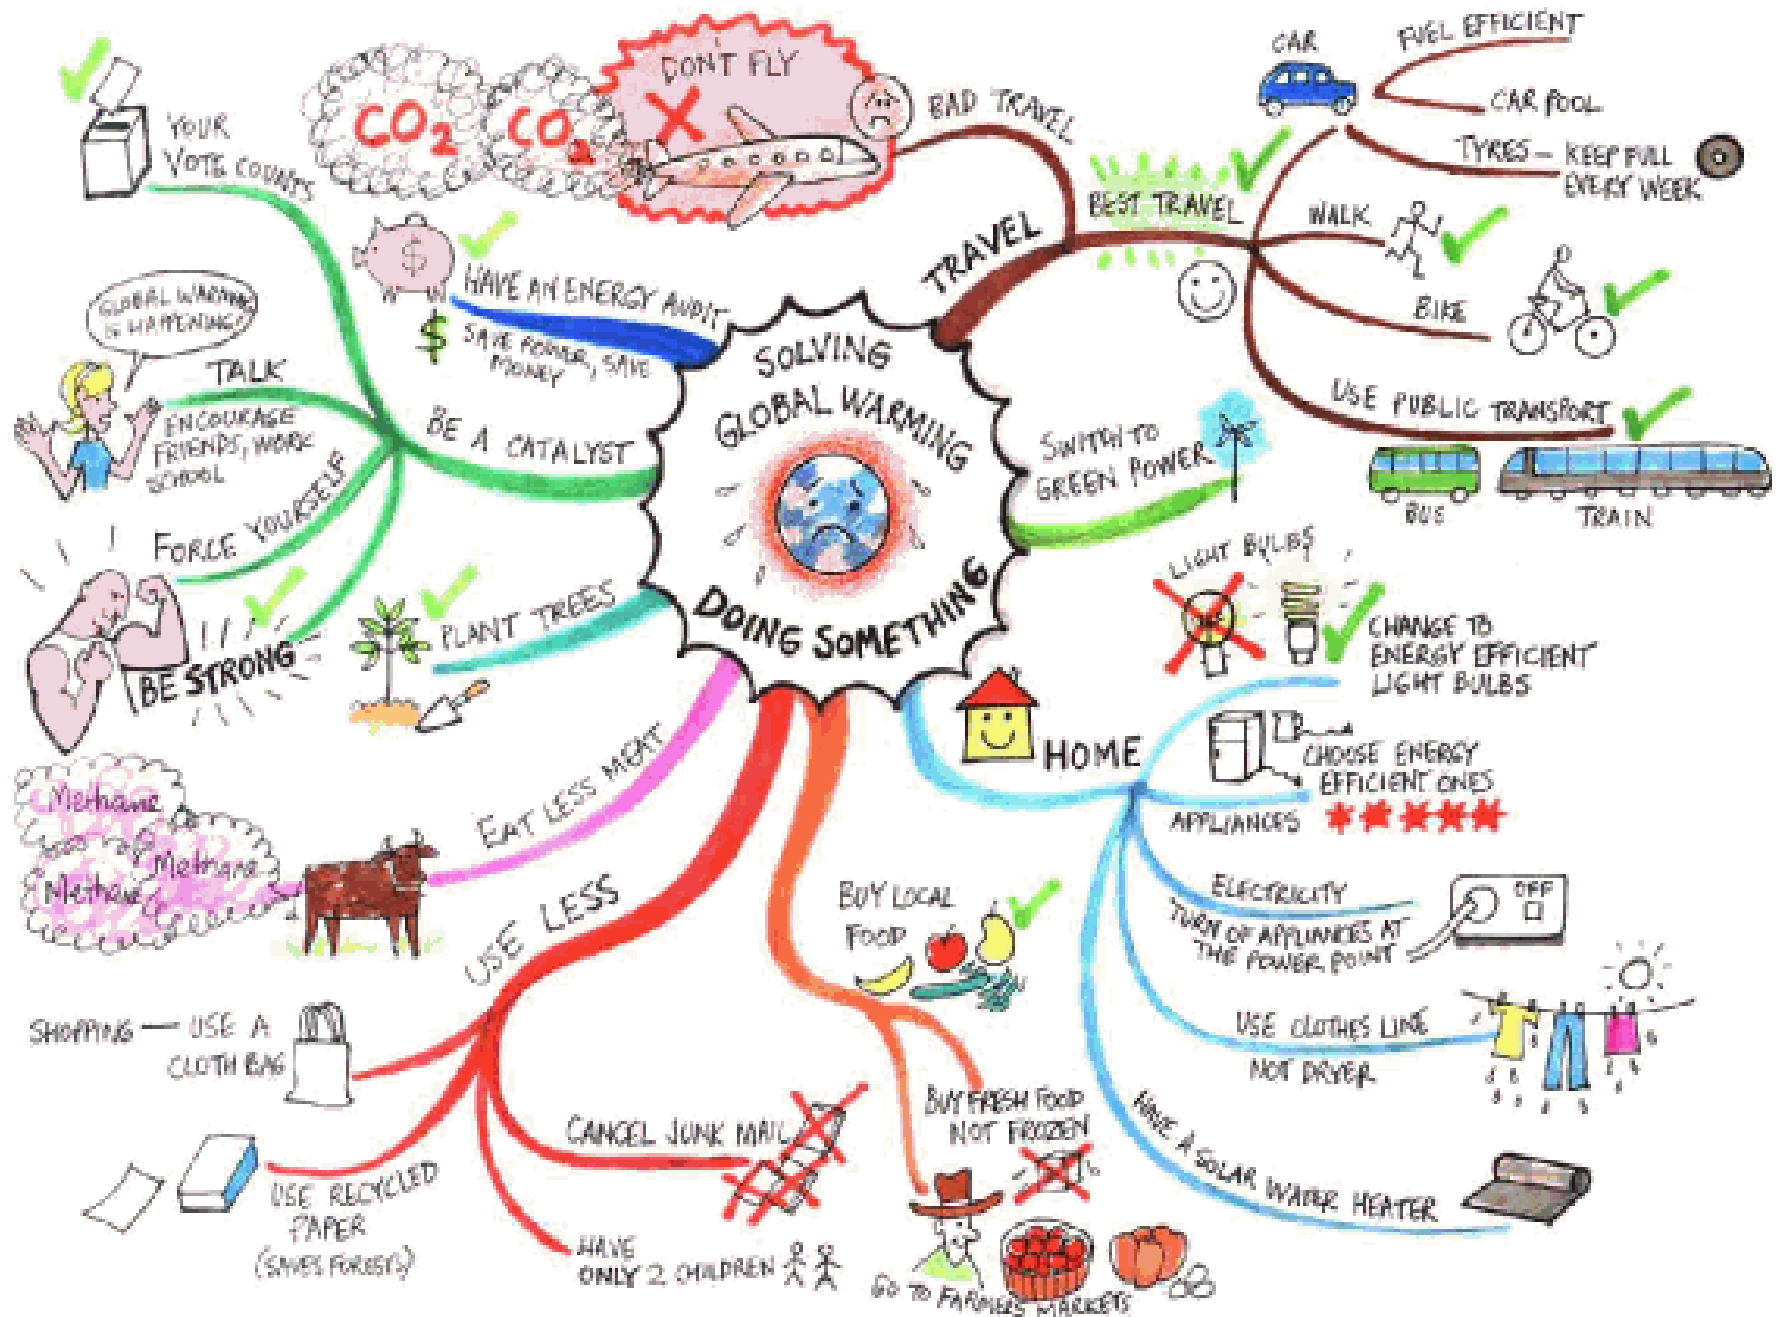 SOLVING
GLOBAL WARMING
DOING SOMETHING
TRAVEL
BAD TRAVEL
DON'T FLY
CO2
CO2
BEST TRAVEL
CAR
FUEL EFFICIENT
CAR POOL
TYRES – KEEP FULL
EVERY WEEK
WALK
BIKE
USE PUBLIC TRANSPORT
BUS
TRAIN
SWITCH TO
GREEN POWER
HOME
LIGHT BULBS
CHANGE TO
ENERGY EFFICIENT
LIGHT BULBS
CHOOSE ENERGY
EFFICIENT ONES
APPLIANCES
ELECTRICITY
OFF
TURN OF APPLIANCES AT
THE POWER POINT
USE CLOTHES LINE
NOT DRYER
HAVE A SOLAR WATER HEATER
BUY LOCAL
FOOD
BUY FRESH FOOD
NOT FROZEN
GO TO FARMERS MARKETS
USE LESS
SHOPPING — USE A
CLOTH BAG
USE RECYCLED
PAPER
(SAVES FORESTS)
CANCEL JUNK MAIL
HAVE
ONLY 2 CHILDREN
EAT LESS MEAT
Methane
Methane
Methane
PLANT TREES
BE A CATALYST
YOUR
VOTE COUNTS
TALK
GLOBAL WARMING
IS HAPPENING!
ENCOURAGE
FRIENDS, WORK
SCHOOL
FORCE YOURSELF
BE STRONG
HAVE AN ENERGY AUDIT
$
$
SAVE POWER, SAVE
MONEY